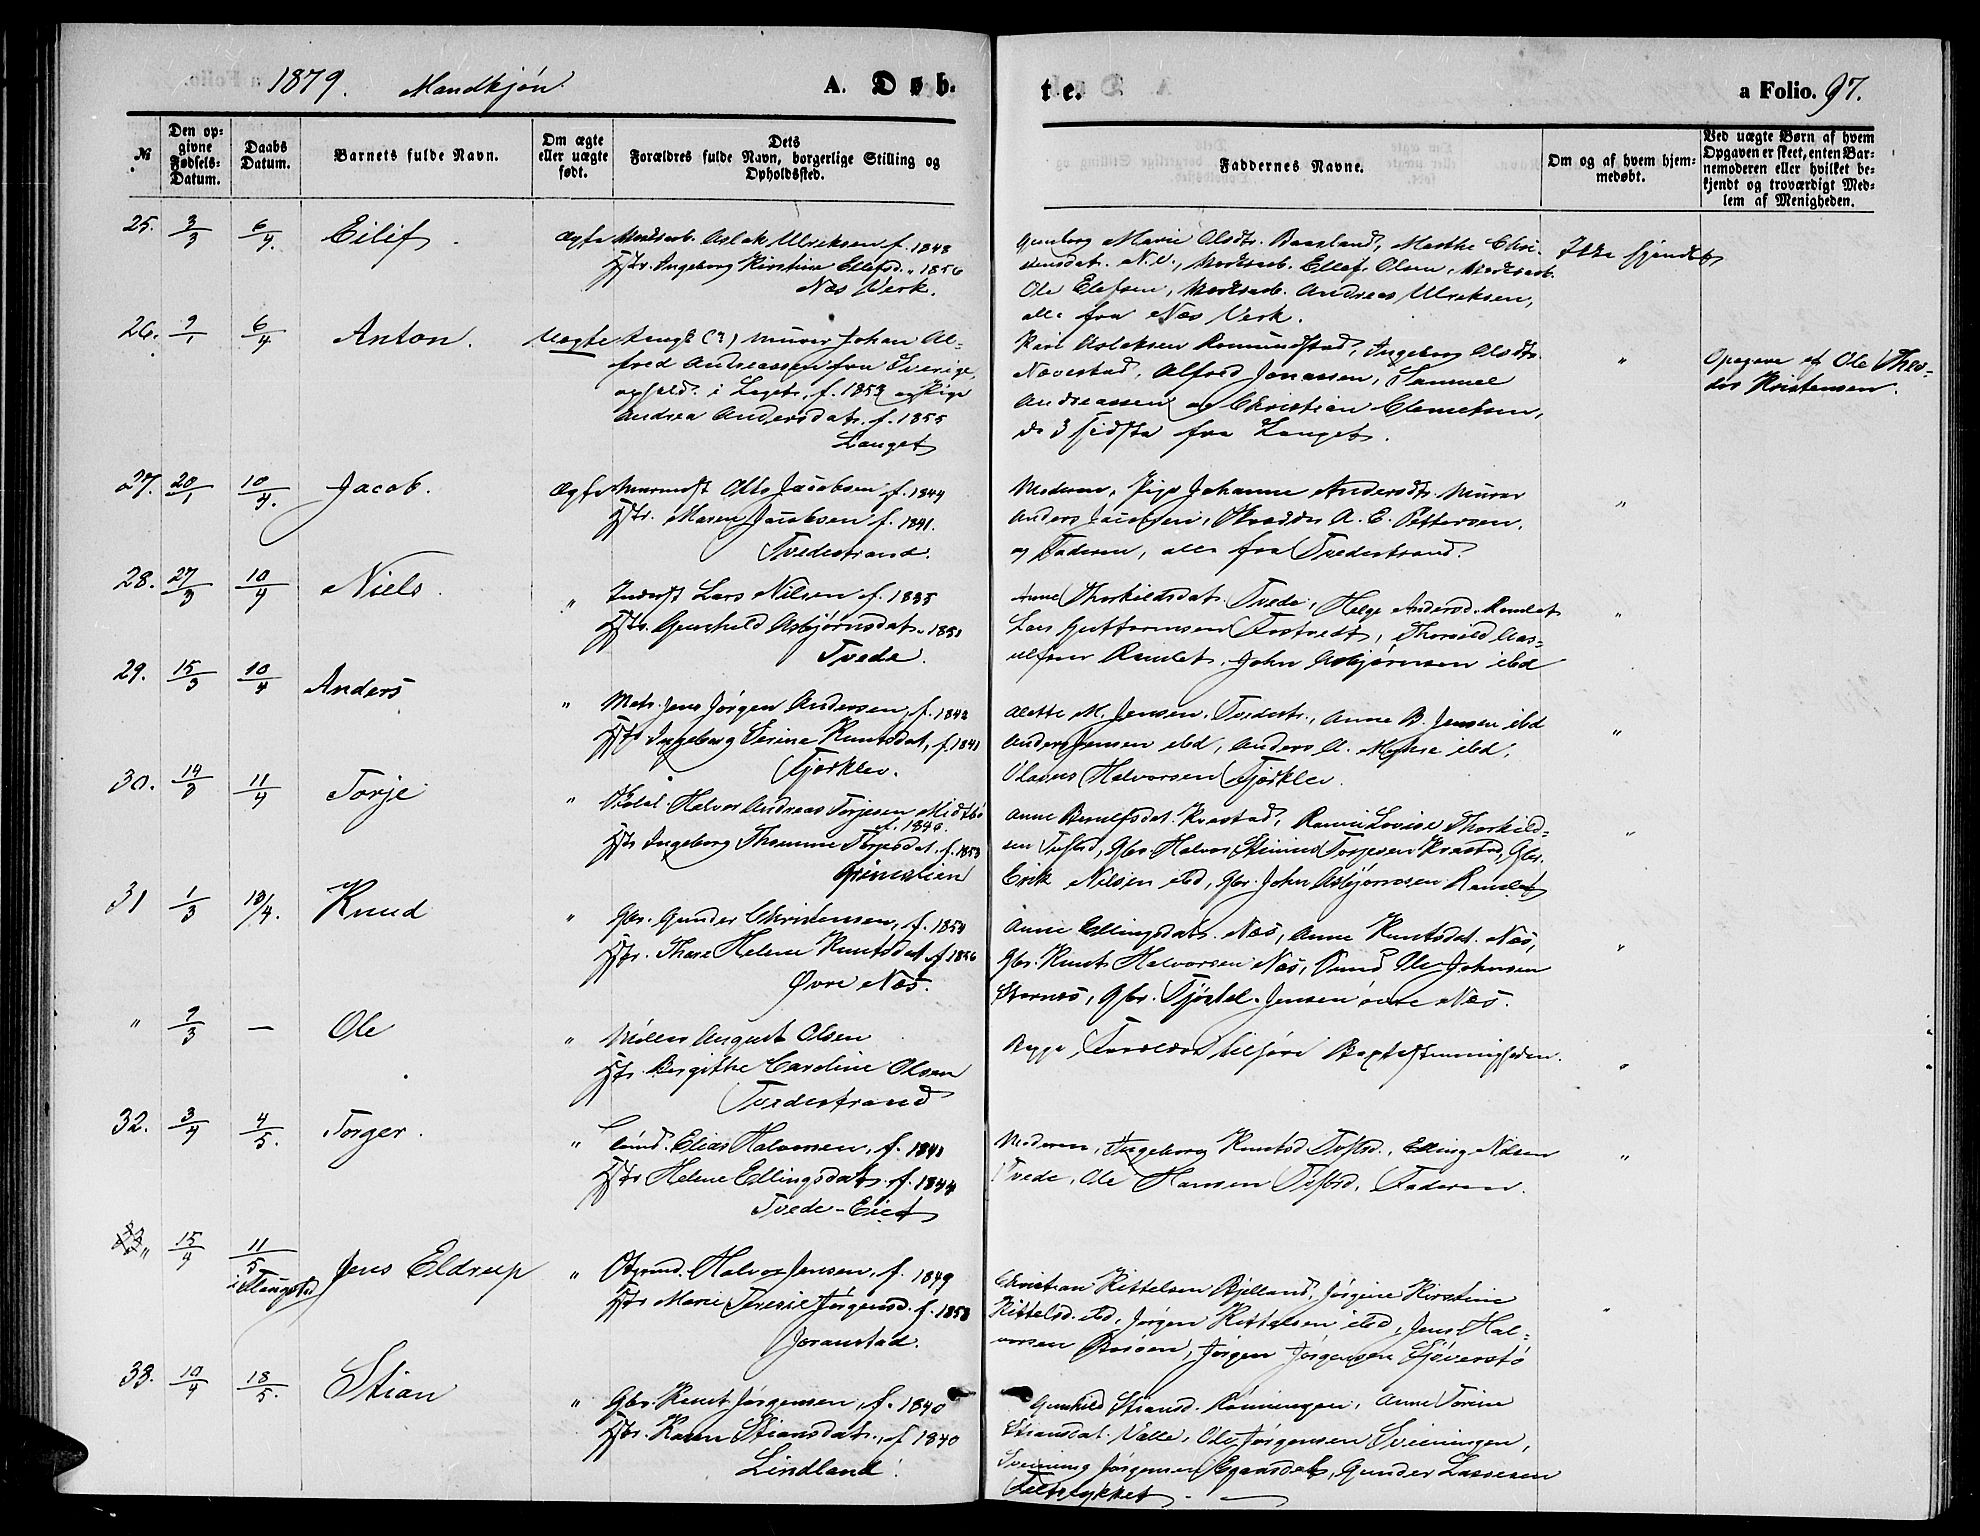 1879. Mandkjøn. A. Døb-
te. a Folio. 97.
№
Den op-
givne
Fødsels-
Datum.
Daabs
Datum.
Barnets fulde Navn.
Om ægte
eller uægte
født.
Dets
Forældres fulde Navn, borgerlige Stilling og
Opholdssted.
Faddernes Navne.
Om og af hvem hjem-
medøbt.
Ved uægte Børn af hvem
Opgaven er skeet, enten Bar-
nemoderen eller hvilket be-
kjendt og troværdigt Med-
lem af Menigheden.
25. 3/3 6/4. Eilif. Ægte
Aslak Ulriksen f. 1848
Hstr. Ingeborg Kirstine Ellefsd. " 1856
Næs Verk.
Gunborg Marie Olsdtr. Baasland, Marthe Chri-
stensdat. N.V., Ellef Olsen,
Ole Elefsen, Andreas Ulriksen,
alle fra Næs Verk.
26. 9/1 6/4 Anton. Uægte
(?) murer Johan Al-
fred Andreassen fra Sverige,
ophold. i Laget, f. 1853 og Pige
Andrea Andersdat. f. 1855
Langet
Aslaksen Romundstad, Ingeborg Olsdtr.
Nævestad, Alfred Jonassen, Samuel
Andreassen og Christian Clemetsen,
de 3 sidste fra Langet.
"
Opgave af Ole Theo-
dor Kristensen.
27. 20/1 10/4. Jacob. Ægte
Otto Jacobsen f. 1844
Hstr. Maren Jacobsen f. 1841.
Tvedestrand.
Moderen, Pige Johanne Andersdt. Murer
Anders Jacobsen, A. E. Pettersen,
og Faderen, alle fra Tvedestrand.
"
28. 27/3 10/4 Niels. "
Inderst Lars Nilsen f. 1835
Hstr. Gunhild Asbjørnsdat. " 1851
Tvede.
Anne Thorkildsdat. Tvede, Helge Andersd. Ramlet
Lars Guttormsen Fostvedt, Thorkild Aas-
Ramlet, John Asbjørnsen ibd
"
29. 15/3 10/4 Anders "
Matr. Jens Jörgen Andersen, f. 1842
Hstr Ingeborg Serine Knutsdat, f. 1841
Fjærklev.
Alette M. Jensen, Tvedestr., Anne B. Jensen ibd
Anders Jensen ibd, Anders A. ibd,
Olaves Halvorsen Fjærklev.
"
30. 14/3 11/4 Torje "
Halvor Andreas Torjesen Midtbö
f. 1840.
Hstr Ingeborg Thomine Torjesdat. f. 1853
Grimelien
Anne Knastad, Lovise Thorkild-
sen Tufted, Gbr. Halvor Torjesen Knastad, Gbr.
Erik Nilsen ibd, Gbr. John Asbjørnsen Ramlet
"
31 1/3 13/4. Knud "
Gbr. Gunder Christensen, f. 1854
Hstr. Thare Helene Knutsdat. f. 1856
Øvre Næs.
Anne Ellingsdat. Næs, Anne Knutsdat. Næs,
Gbr. Knut Halvorsen Næs, Ole Johnsen
Gbr. Fjöstel Jensen övre Næs.
"
" 9/3 — Ole "
Möller August Olsen
Hstr. Bergithe Caroline Olsen
Tvedestrand
Begge Forældre tilhøre Baptistmenigheden.
"
32. 3/4 4/5. Torger. "
Elias Halvorsen, f. 1841
Hstr Helene Ellingsdat. f. 1844
Tvede-Eiet
Moderen, Ingeborg Knutsd Tufted., Elling Nilsen
Tvede, Ole Hansen Tufted, Faderen.
"
33 " 15/4 11/5 Jens Eldrup "
Halvor Jensen, f. 1849
Hstr Marie Teresie Jørgensd. f. 1853
Joranstad.
Christian Kittelsen Bjelland, Jörgine Kirstine
Kittelsd. ibd, Jörgen Kittelsen ibd, Jens Hal-
vorsen Jörgen Jörgensen
"
33. 10/4 18/5. Stian "
Gbr. Knut Jörgensen, f. 1840
Hstr. Karen Stiansdat., f 1840
Lindland.
Gunhild Stiansd. Rönningen, Anne Torine
Stiansdat. Valle, Ole Jörgensen Sveiningen,
Sveinung Jörgensen Gunder Lassesen